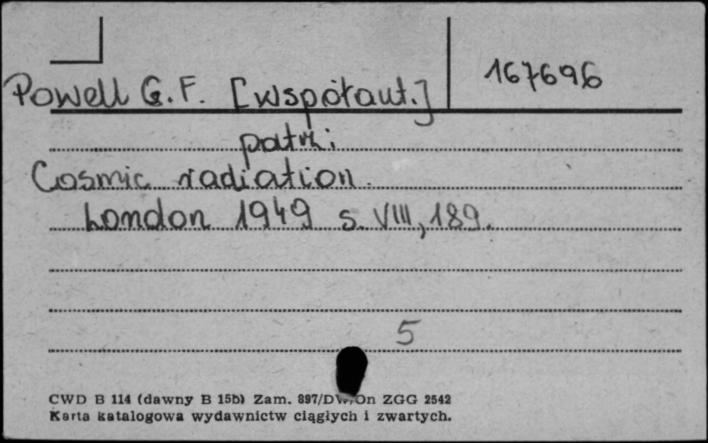 Powell G.F. [współaut.]
167696
patrz:
Cosmic radiation.
London 1949 s. VIII, 189.
5
CWD B 114 (dawny B 15b) Zam. 897/DW/On ZGG 2542
Karta katalogowa wydawnictw ciągłych i zwartych.